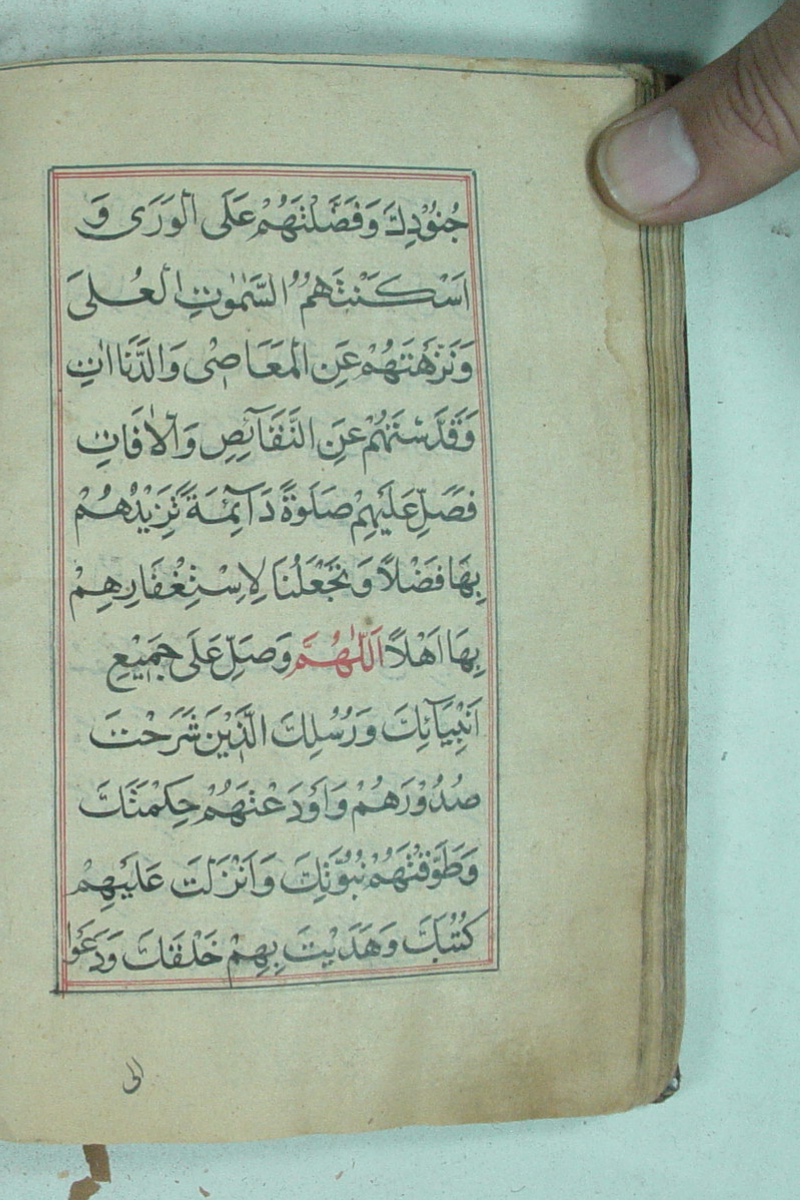 جُنُوْدِكَ وَفَضَّلْتَهُمْ عَلَى الْوَرَى وَ
اَسْكَنْتَهُمُ السَّمٰوٰتِ الْعُلٰى
وَنَزَّهْتَهُمْ عَنِ الْمَعَاصِىْ وَالدَّنَااٰتِ
وَقَدَّسْتَهُمْ عَنِ النَّقَآئِصِ وَالْاٰفَاتِ
فَصَلِّ عَلَيْهِمْ صَلٰوةً دَآئِمَةً تَزِيْدُهُمْ
بِهَا فَضْلًا وَتَجْعَلُنَا لِاِسْتِغْفَارِهِمْ
بِهَا اَهْلًا اَللّٰهُمَّ وَصَلِّ عَلَى جَمِيْعِ
اَنْبِيَآئِكَ وَرُسُلِكَ الَّذِيْنَ شَرَحْتَ
صُدُوْرَهُمْ وَاَوْدَعْتَهُمْ حِكْمَتَكَ
وَطَوَّقْتَهُمْ نُبُوَّتَكَ وَاَنْزَلْتَ عَلَيْهِمْ
كُتُبَكَ وَهَدَيْتَ بِهِمْ خَلْقَكَ وَدَعَوْا
الى